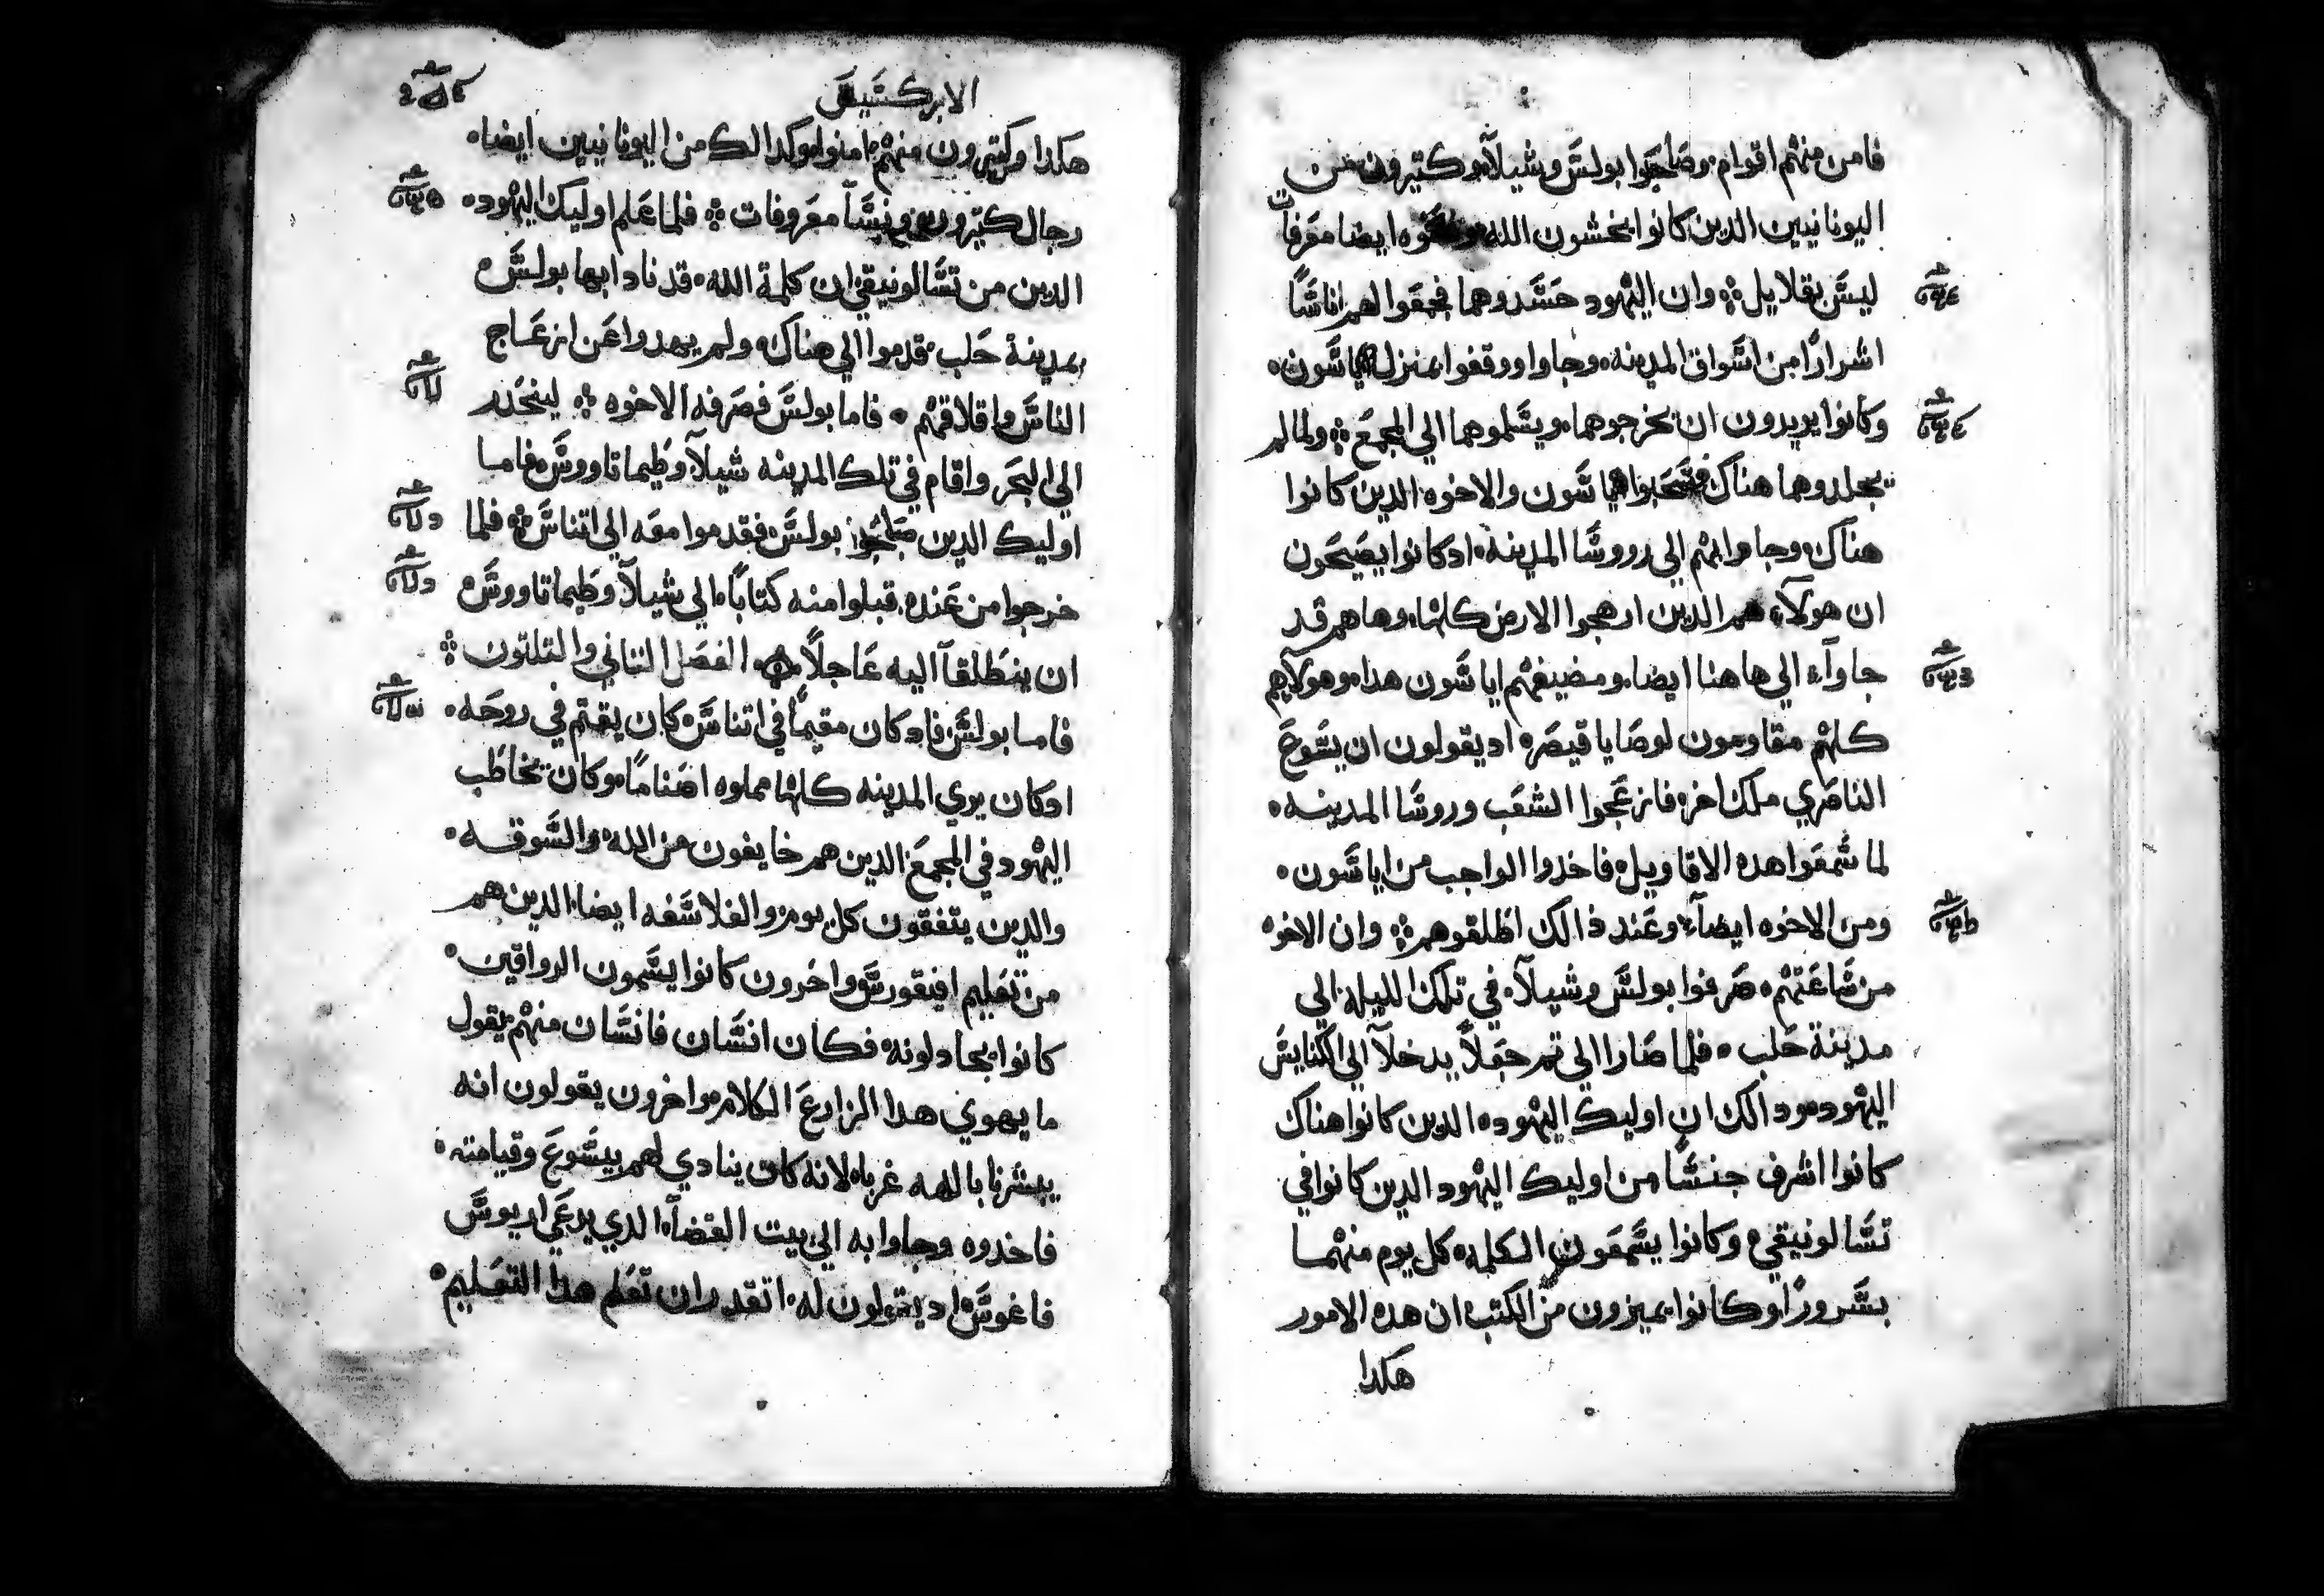 فامن منهم اقوام وصاحبوا بولس وشيلا وكتيرون من
اليونانيين الدين كانوا يخشون الله ايضا معرفات
ليس بقلايل وان اليهود حسدوهما فجمعوا لهم اناسا
اشرارا من اسواق المدينه وجاوا ووقفوا بمنزل اياسون
وكانوا يريدون ان يخرجوهما ويسلموهما الي المجمع ولما لم
يجدوهما هناك فسحبوا اياسون والاخوه الدين كانوا
هناك وجاوا بهم الي رووسا المدينه ادكانوا يصيحون
ان هولاء هم الدين ارهجوا الارض كلها وها هم قد
جاوآء الي هاهنا ايضا ومضيفهم اياسون هدا وهولايهم
كلهم مقاومون لوصايا قيصر اد يقولون ان يسوع
الناصري ملك اخر فازعجوا الشعب وروسا المدينه
لما سمعوا هده الاقاويل فاخدوا الواجب من اياسون
ومن الاخوه ايضآء وعند ذالك اطلقوهم وان الاخوه
من ساعتهم صرفوا بولس وشيلا في تلك الليله الي
مدينة حلب فلما صارا الي تم جعلا يدخلا الي الكنايس
اليهود ودالك ان اوليك اليهود الدين كانوا هناك
كانوا اشرف جنسا من اوليك اليهود الدين كانوا في
تسالونيقي وكانوا يسمعون الكلمه كل يوم منهما
بسرورا وكانوا يميزون من الكتب ان هده الامور
هكدا
الابركسيس
هكدا وكتيرون منهم امنوا وكدالك من اليونانيين ايضا
رجال كتيرون ونسآ معروفات فلما علم اوليك اليهود
الدين من تسالونيقي ان كلمة الله قد نادا بها بولس
بمدينة حلب قدموا الي هناك ولم يهدوا عن ازعاج
الناس واقلاقهم فاما بولس فصرفه الاخوه لينحدر
الي البحر واقام في تلك المدينه شيلا وطيماتاووس فاما
اوليك الدين صاحبوا بولس فقدموا معه الي اتناس فلما
خرجوا من عنده قبلوا منه كتابا الي شيلا وطيماتاووس
ان ينطلقآ اليه عاجلا الفصل التاني والتلتون
فاما بولس فادكان مقيما في اتناس كان يغتم في روحه
ادكان يري المدينه كلها مملوه اصناما وكان يخاطب
اليهود في المجمع الدين هم خايفون من الله والسوقه
والدين يتفقون كل يوم والفلاسفه ايضا الدين هم
من تعليم افيقورس واخرون كانوا يسمون الرواقين
كانوا يجادلونه فكان انسان فانسان منهم يقول
ما يهوي هدا الزارع الكلام واخرون يقولون انه
يبشرنا بالهه غربا لانه كان ينادي لهم بيسوع وقيامته
فاخدوه وجاوا به الي بيت القضآ الدي يدعي اريوس
فاغوس اد يقولون له اتقدر ان تعلم هدا التعليم